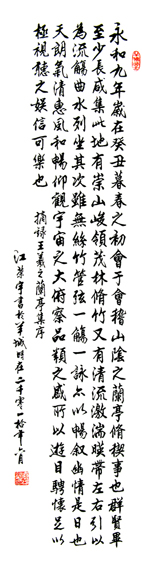 永和九年歲在癸丑暮春之初會于會稽山陰之蘭亭脩禊事也群賢畢
至少長咸集此地有崇山峻領茂林脩竹又有清流激湍暎帶左右引以
為流觴曲水列坐其次雖無絲竹管弦一觴一詠亦以暢叙幽情是日也
天朗氣清惠風和暢仰觀宇宙之大俯察品類之盛所以遊目騁懷足以
極視聽之娛信可樂也
摘録王羲之蘭亭集序
江榮宇書於羊城時在二千零一拾年六月